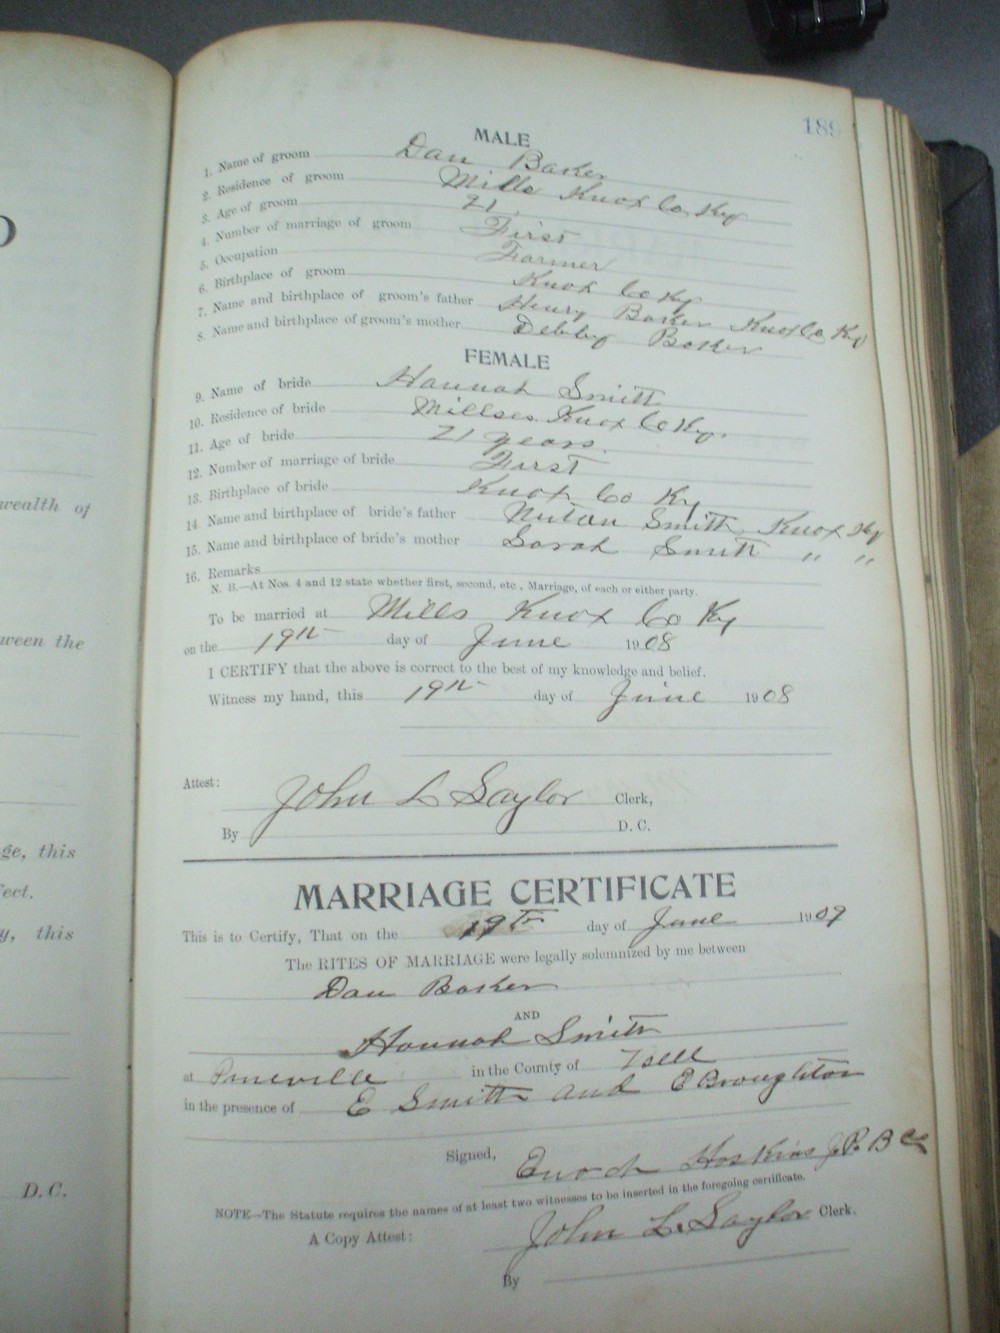 189
MALE
1. Name of groom Dan Baker
2. Residence of groom Mills Knox Co, Ky
3. Age of groom 21
4. Number of marriage of groom First
5. Occupation Farmer
6. Birthplace of groom Knox Co Ky
7. Name and birthplace of groom's father Henry Baker Knox Co Ky
8. Name and birthplace of groom's mother Debby Baker
FEMALE
9. Name of bride Hannah Smith
10. Residence of bride Knox Co Ky.
11. Age of bride 21 years
12. Number of marriage of bride First
13. Birthplace of bride Knox Co Ky
14. Name and birthplace of bride's father Smith, Knox Ky
15. Name and birthplace of bride's mother Sarah Smith " "
16. Remarks
N. B.—At Nos. 4 and 12 state whether first, second, etc., Marriage, of each or either party.
To be married at Mills Knox Co Ky
on the 19th day of June 1908
I CERTIFY that the above is correct to the best of my knowledge and belief.
Witness my hand, this 19th day of June 1908
Attest: John L Saylor Clerk,
By D. C.
MARRIAGE CERTIFICATE
This is to Certify, That on the 19th day of June 1909
The RITES OF MARRIAGE were legally solemnized by me between
Dan Baker
AND
Hannah Smith
at Pineville in the County of
in the presence of E Smith and E Broughton
Signed, Enoch Hoskins J.P. B C
NOTE—The Statute requires the names of at least two witnesses to be inserted in the foregoing certificate.
A Copy Attest: John L. Saylor Clerk.
By
wealth of
ween the
ge, this
fect.
y, this
D. C.